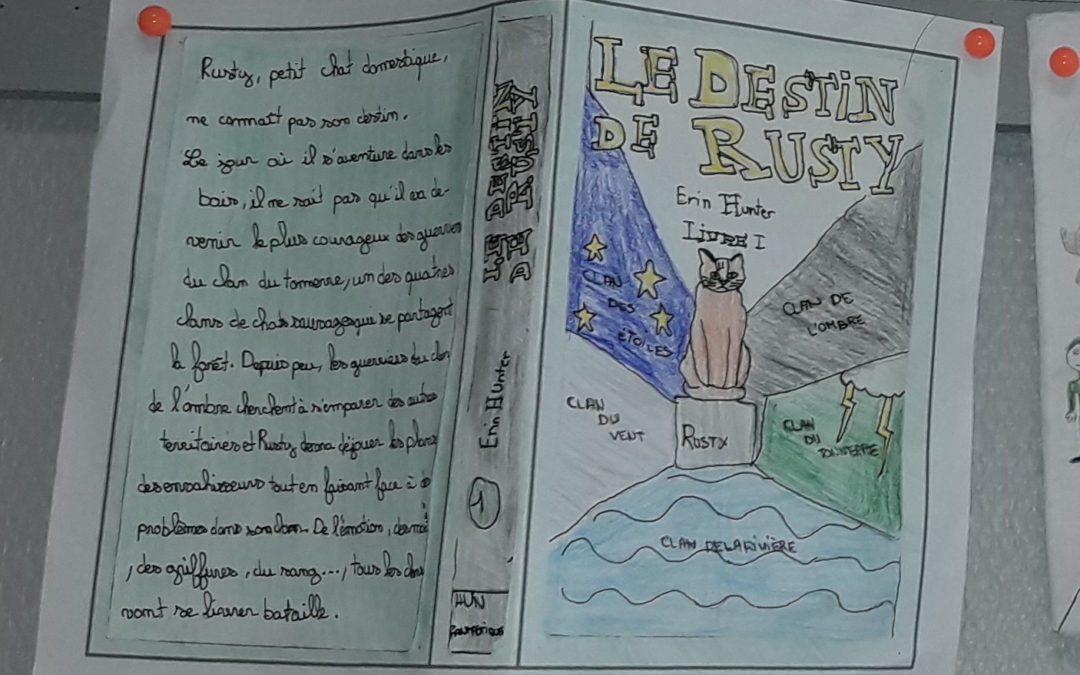 Rusty, petit chat domestique,
ne connait pas son destin.
Le jour où il s'aventure dans les
bois, il ne sait pas qu'il va de-
venir le plus courageux des guerriers
du clan du tonnerre, un des quatres
clans de chats sauvages qui se partagent
la forêt. Depuis peu, les guerriers du clan
de l'ombre cherchent à s'emparer des autres
territoires et Rusty devra déjouer les plans
des envahisseurs tout en faisant face à
problèmes dans son clan. De l'émotion, des
, des griffures, du sang..., tous les clans
vont se livrer bataille.
LE DESTIN
DE RUSTY
Erin Hunter
1
HUN
LE DESTIN
DE RUSTY
Erin Hunter
LIVRE I
CLAN
DES
ÉTOILES
CLAN DE
L'OMBRE
CLAN
DU
VENT
RUSTY
CLAN
DU
TONNERRE
CLAN DE LA RIVIÈRE